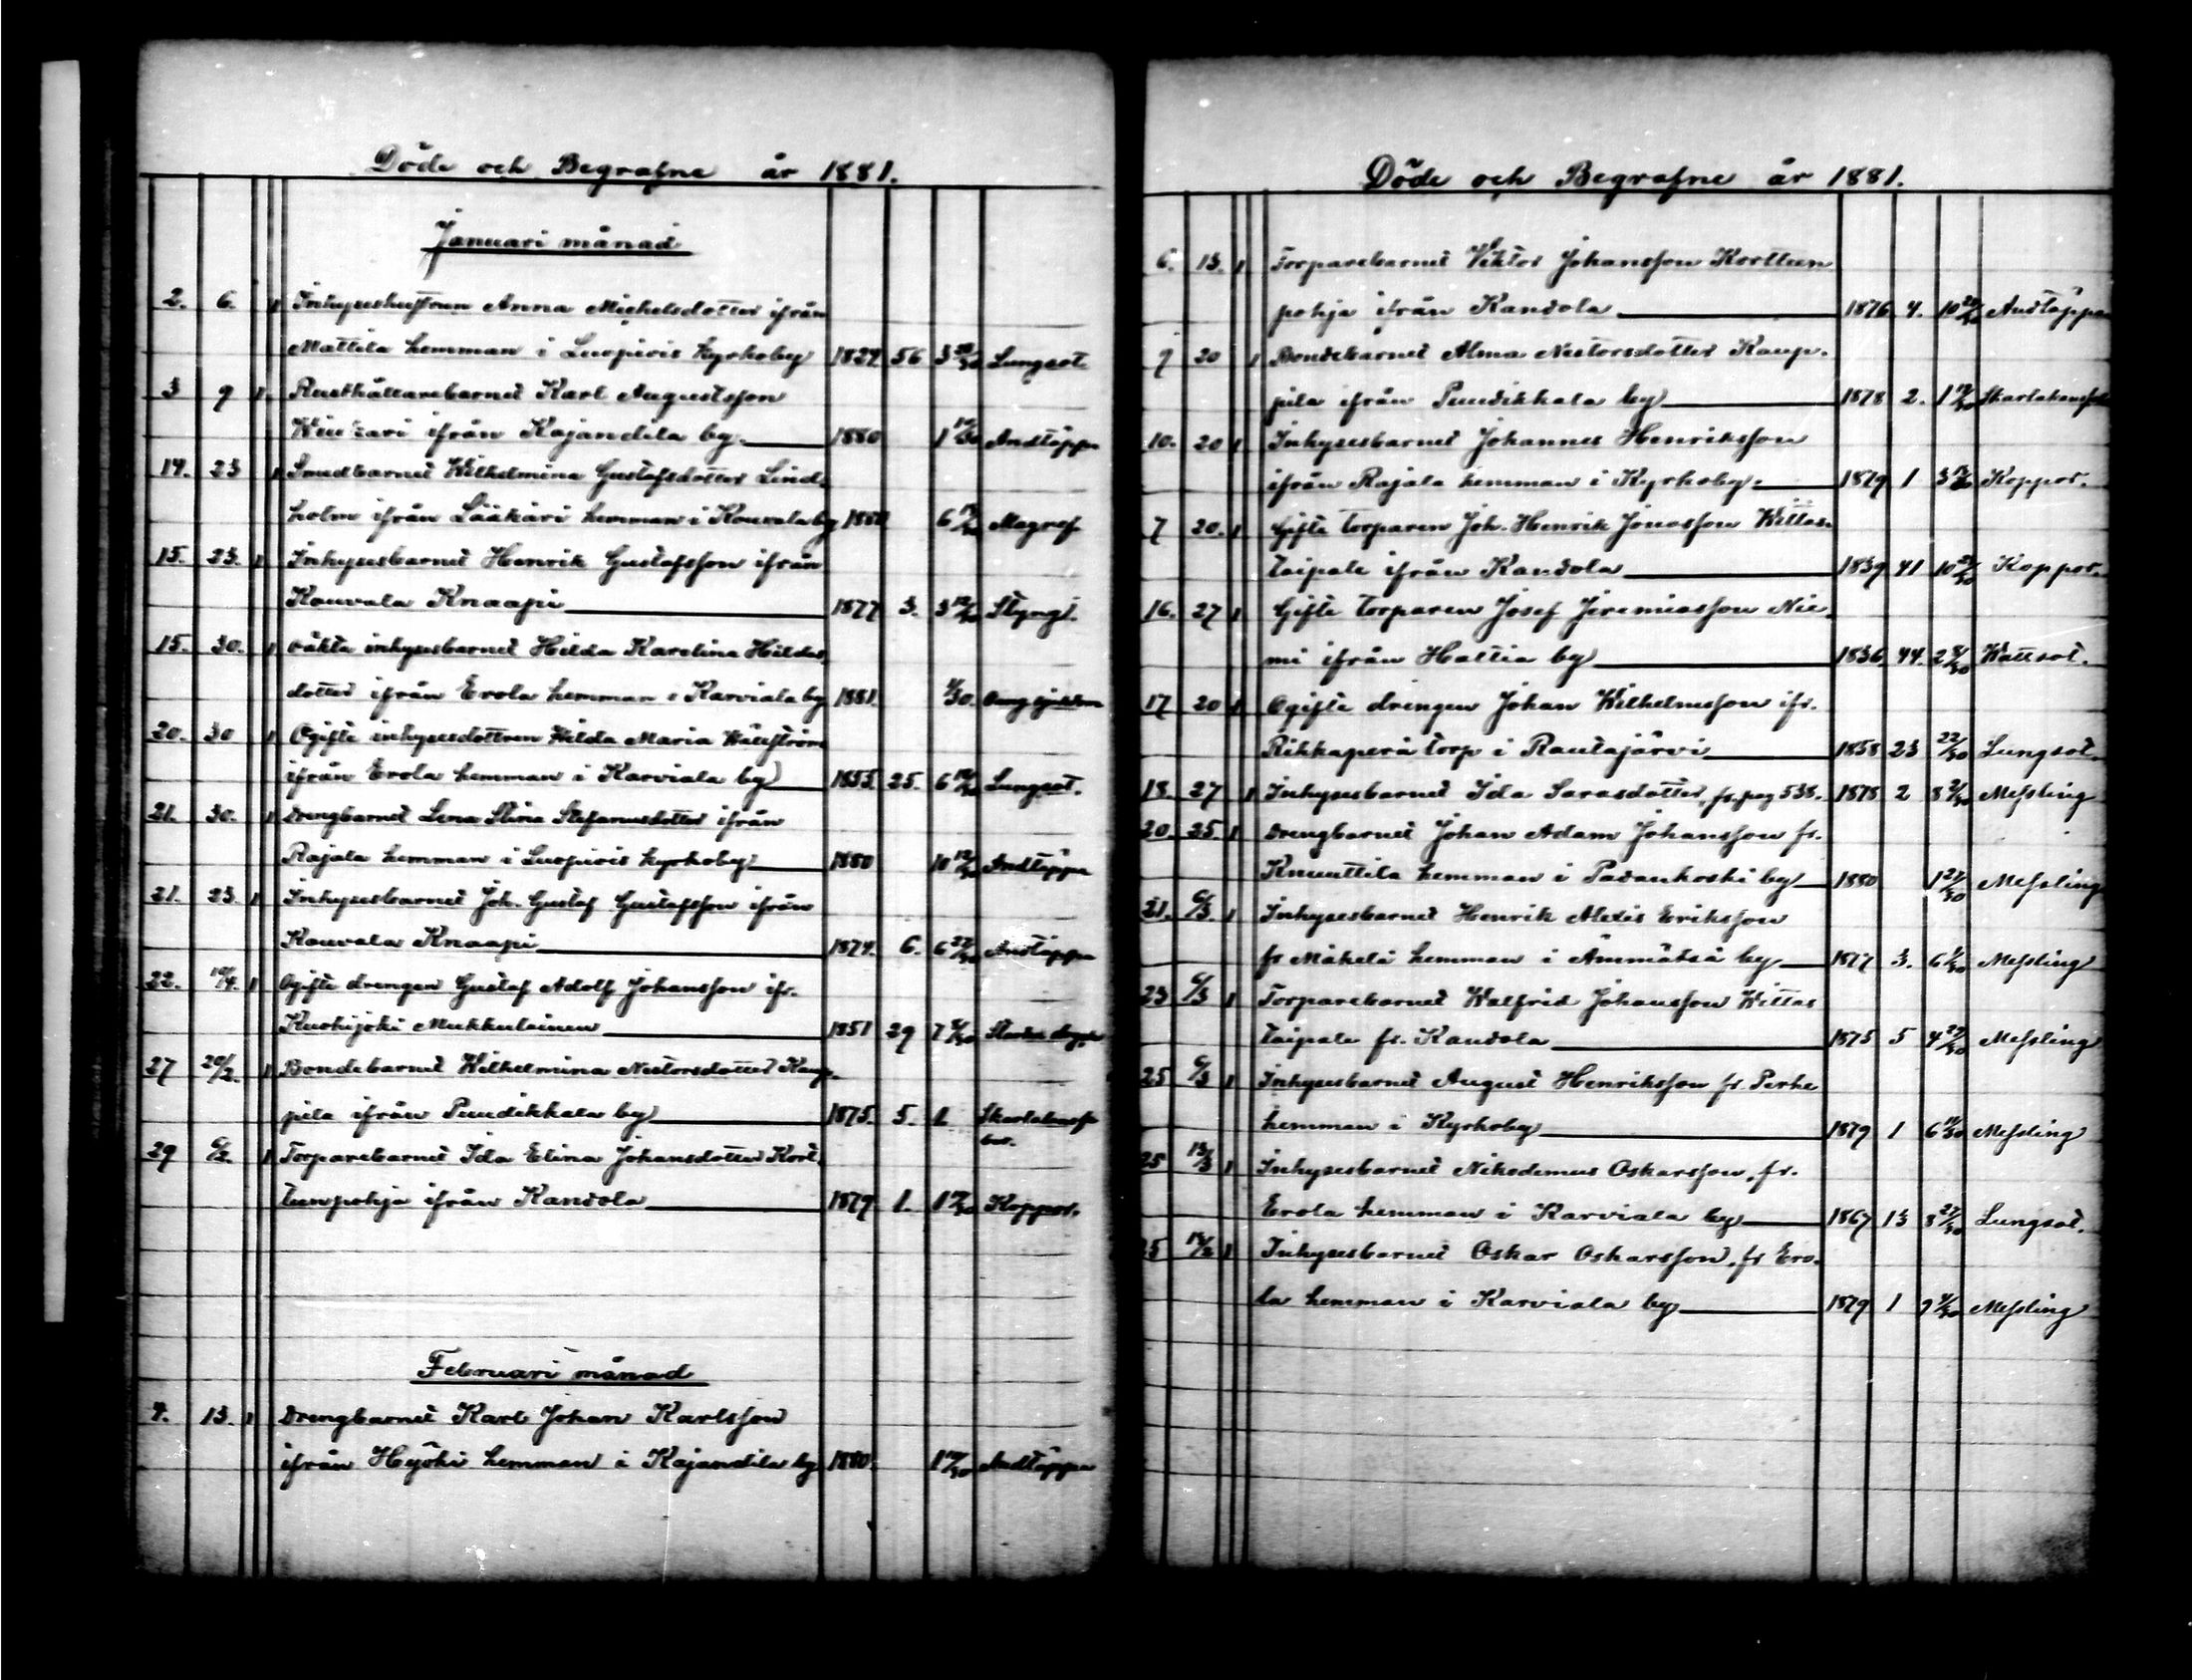 Döde och Begrafne år 1881.
Januari månad
2. 6. 1 Inhyseshustrun Anna Michelsdotter ifrån
Mattila hemman i Luopiois Kyrkoby 1824 56 3 Lungsot.
3 9 1. Rusthållarebarnet Karl Augustsson
ifrån Kajandila by. 1880 1 Andtäppa
14. 23 1 Smedbarnet Wilhelmina Gustafsdotter Lind-
holm ifrån Lääkäri hemman i Kouvala by 1880 6 Magref
15. 23. 1 Inhysesbarnet Henrik Gustafsson ifrån
Kouvala Knaapi 1877 3. 3 12/30 Styng.
15. 30. 1 oäkta inhysesbarnet Hilda Karolina Hildas
dotter ifrån Erola hemman i Karviala by 1881.
20. 30 1 Ogifte inhysesdottren Wilda Maria
ifrån Erola hemman i Karviala by 1855. 25. 6 Lungsot.
21. 30. 1 Drengbarnet Lena Stina Stefanusdotter ifrån
Rajala hemman i Luopiois Kyrkoby 1880 10 12/30 Andtäppa
21. 23. 1 Inhysesbarnet Joh. Gustaf Gustafsson ifrån
Kouvala Knaapi 1874. 6. 6 27/30 Andtäppa
22. 1 Ogifte drengen Gustaf Adolf Johansson ifr.
Kuohijoki Mukkulainen 1851 29 7
27 20/2. 1 Bondebarnet Wilhelmina Nestorsdotter Kaup-
pila ifrån Puudikkala by 1875. 5. 1
29 6/2. 1 Torparebarnet Ida Elina Johansdotter Kort-
teenpohja ifrån Kandola 1879 1. 1 Koppor.
Februari månad
4. 13. 1 Drengbarnet Karl Johan Karlsson
ifrån Hyöki hemman i Kajandila by 1880. 1 Andtäppa
Döde och Begrafne år 1881.
6. 13. 1 Torparebarnet Viktor Johansson Kortteen
pohja ifrån Kandola 1876 4. 10 Andtäppa
7 20 1 Bondebarnet Alma Nestorsdotter Kaup-
pila ifrån Puudikkala by 1878 2. 1
10. 20 1 Inhysesbarnet Johannes Henriksson
ifrån Rajala hemman i Kyrkoby. 1879 1 3 Koppor.
7 20. 1 Gifte torparen Joh. Henrik Jonasson Wittas-
taipale ifrån Kandola 1839 41 10 Koppor.
16. 27 1 Gifte torparen Josef Jeremiasson Nie-
mi ifrån Haltia by 1836 44. 2 Wattsot.
17 20 1 Ogifte drengen Johan Wilhelmsson ifr.
Rikkaperä torp i Rautajärvi 1858 23 22/30 Lungsot.
18. 27 1 Inhysesbarnet Ida Sarasdotter, fr. pag 538. 1878 2 8 Messling
20. 25. 1 Drengbarnet Johan Adam Johansson fr.
Knuuttila hemman i Padankoski by 1880 1 27/30 Messling
21. 6/3. 1 Inhysesbarnet Henrik Alexis Eriksson
fr Mäkelä hemman i Ämmätsä by 1877 3. 6 Messling
23 6/3 1 Torparebarnet Walfrid Johansson Wittas
taipale fr. Kandola 1875 5 4 27/30 Messling
25 6/3 1 Inhysesbarnet August Henriksson fr. Perho
hemman i Kyrkoby 1879 1 6 Messling
25 13/3 1 Inhysesbarnet Nikodemus Oskarsson, fr.
Erola hemman i Karviala by 1867 13 8 27/30 Lungsot.
25 1 Inhysesbarnet Oskar Oskarsson, fr Ero-
la hemman i Karviala by 1879 1 9 Messling